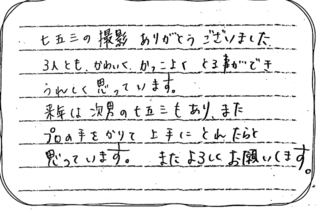 七五三の撮影 ありがとうございました
3人とも、かわいく、かっこよく とる事ができ
うれしく思っています。
来年は次男の七五三もあり、また
プロの手をかりて 上手に とれたらと
思っています。 またよろしくお願いします。